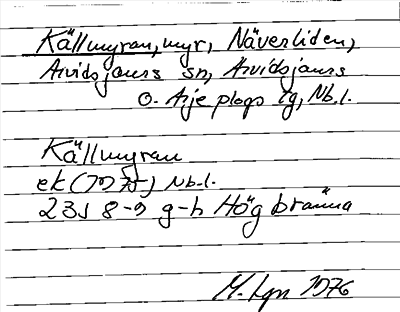 Källmyran, myr, Näverliden,
Arvidsjaurs sn, Arvidsjaurs
o. Arjeplogs lg, Nb.l.
Källmyran
ek (1975) Nb.l.
23J 8-9 g-h Högbränna
M. Lgn 1976